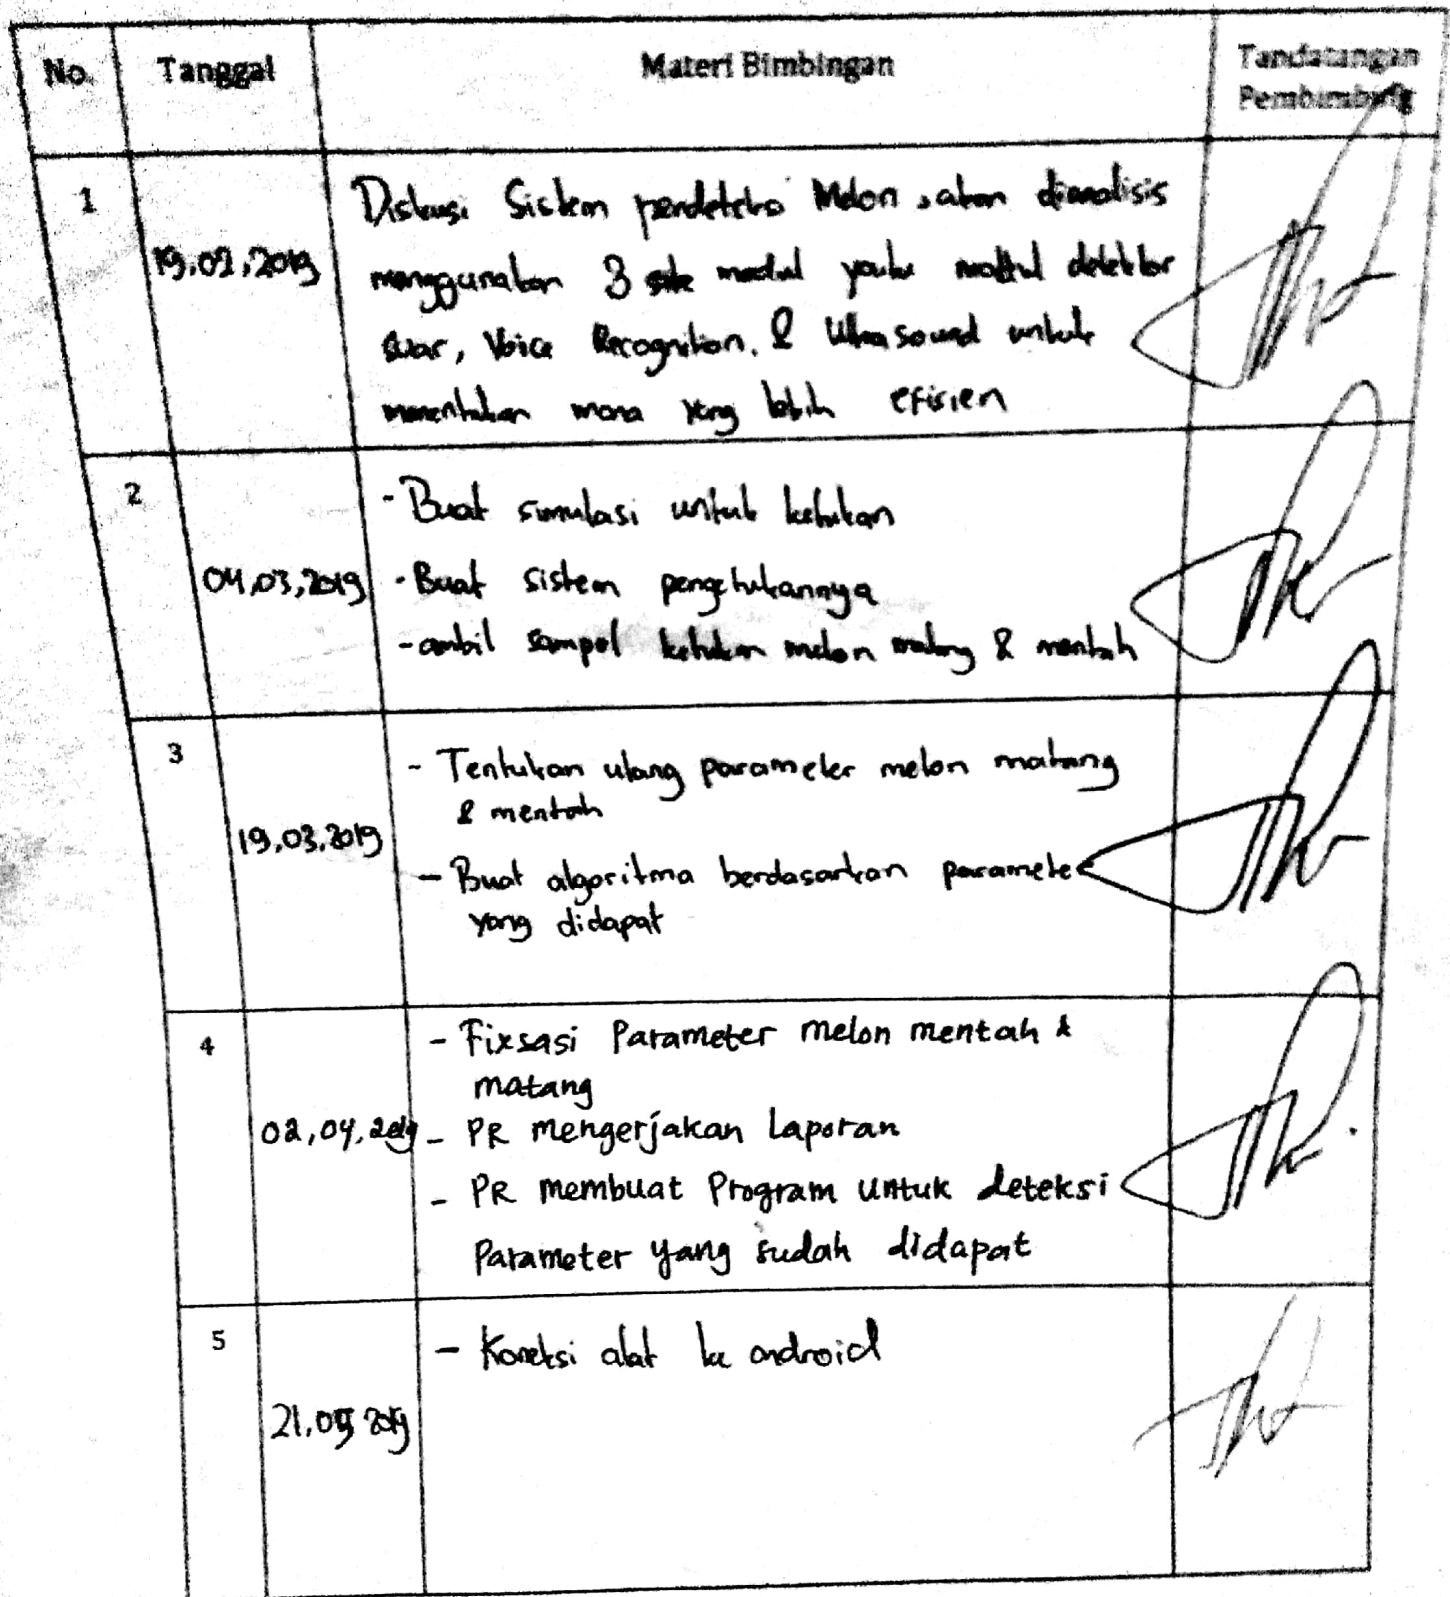 No.
Tanggal
Materi Bimbingan
Tandatangan
Pembimbing
1
19,02,2019
Diskusi Sistem pendeteksi Melon, akan dianalisis
menggunakan 3 modul yaitu modul detektor
suar, Voice Recognition, & Ultrasound untuk
menentukan mana yang lebih efisien
2
04,03,2019
- Buat simulasi untuk ketukan
- Buat sistem pengetukannya
- ambil sampel ketukan melon matang & mentah
3
19,03,2019
- Tentukan ulang parameter melon matang
& mentah
- Buat algoritma berdasarkan parameter
yang didapat
4
02,04,2019
- Fixsasi Parameter melon mentah &
matang
- PR mengerjakan Laporan
- PR membuat Program untuk deteksi
Parameter yang sudah didapat
5
21, 2019
- Koneksi alat ke android